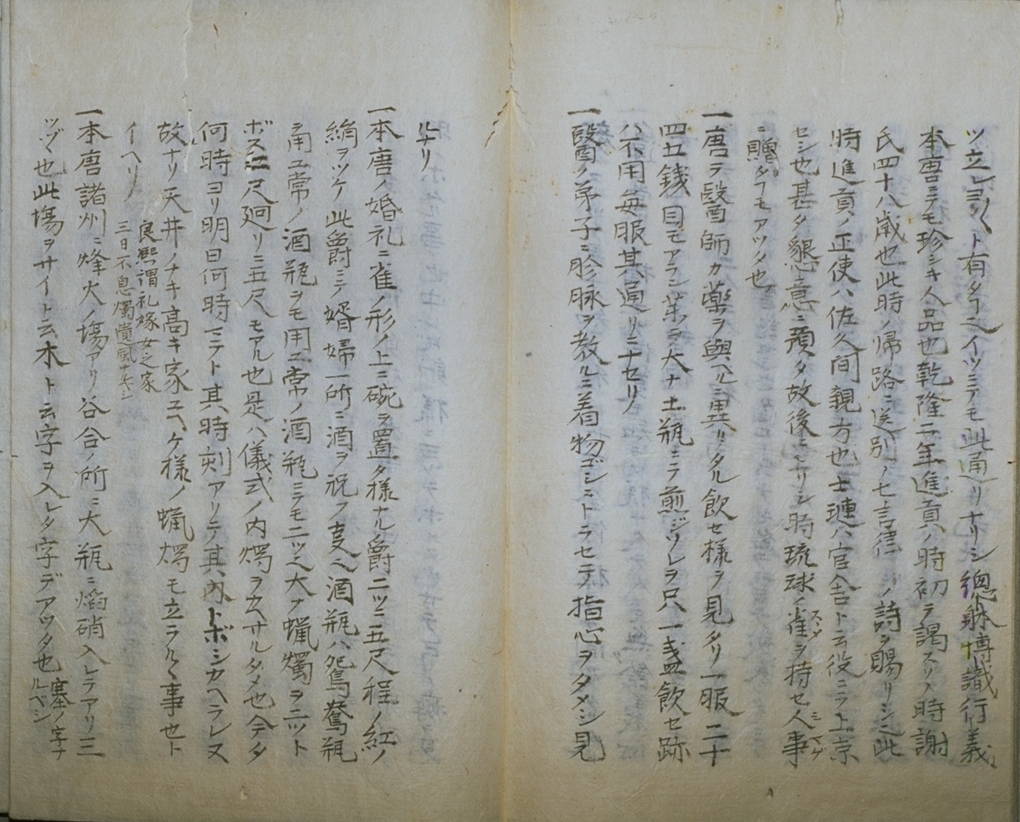 ツ立レヨ〱ト有タ云イツニテモ此通リナリシ總躰博識行義
本唐ニテモ珍シキ人品也乾隆二年進貢ノ時初テ謁スソノ時謝
氏四十八歳也此時ノ帰路ニ送別ノ七言律ノ詩ヲ賜リシ此
時進貢ノ正使ハ佐久間親方也士璉ハ官舎ト云役ニテ上京
セシ也甚タ懇意ニ頼タ故後上リシ時琉球ノ雀ヲ持セ人事
ニ贈タモアツタ也
一唐テ醫師カ藥ヲ與ヘルニ異リタル飲セ様ヲ見タリ一服二十
四五錢目モアラン薬ヲ大ナ土瓶ニテ煎ジソレヲ只一盞飲セ跡
ハ不用毎服其通リニナセリ
一醫ノ弟子ニ胗脉ヲ教ルニ着物ゴシニトラセテ指心ヲタメシ見
ルナリ
一本唐ノ婚礼ニ雀ノ形ノ上ニ碗ヲ置タ様ナル爵二ツニ五尺程ノ紅
絹ヲツケ此爵ニテ婿婦一所ニ酒ヲ祝フ夏ヘ酒瓶ハ鴛鴦瓶
ヲ用ユ常ノ酒瓶ヲモ用ユ常ノ酒瓶ニテモ二ツヘ大ナ蠟燭ヲ二ツト
ボス二尺廻リニ五尺モアル也是ハ儀式ノ内燭ヲ立サルタメ也今夕
何時ヨリ明日何時ニテト其時刻アリテ其内トボシカヘラレヌ
故ナリ天井ノナキ高キ家ユヘケ様ノ蝋燭モ立ラルヽ事也ト
イヘリ
良熙謂礼嫁女之家
三日不息燭
一本唐諸州ニ烽火ノ場アリ谷合ノ所ニ大瓶ニ焔硝入レテアリ三
ツヅ也此場ヲサイト云木ト云字ヲ入レタ字デアツタ也
塞ノ字ナ
ルベシ